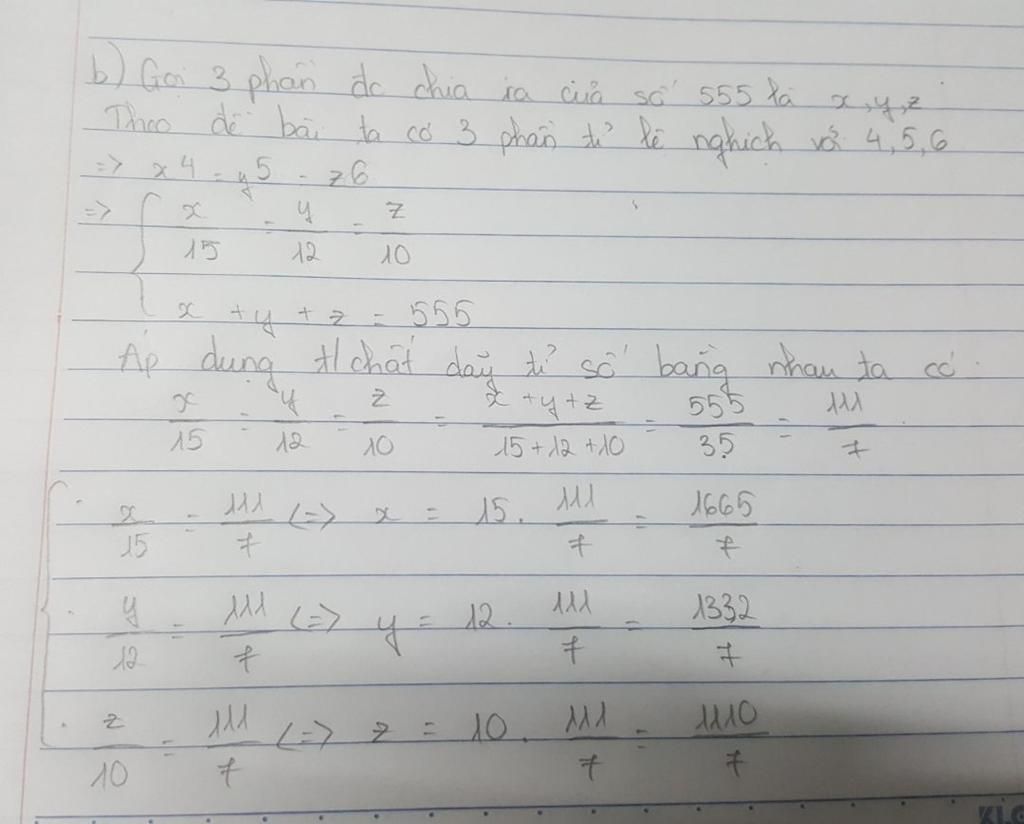 b) Gọi 3 phần đc chia ra của số 555 là x, y, z
Theo đề bài ta có 3 phần tỉ lệ nghịch với 4, 5, 6
=> x4 = y5 = z6
=> { x/15 = y/12 = z/10
x + y + z = 555
Áp dụng t/chất dãy tỉ số bằng nhau ta có
x/15 = y/12 = z/10 = (x + y + z)/(15 + 12 + 10) = 555/35 = 111/7
x/15 = 111/7 <=> x = 15. 111/7 = 1665/7
y/12 = 111/7 <=> y = 12. 111/7 = 1332/7
z/10 = 111/7 <=> z = 10. 111/7 = 1110/7